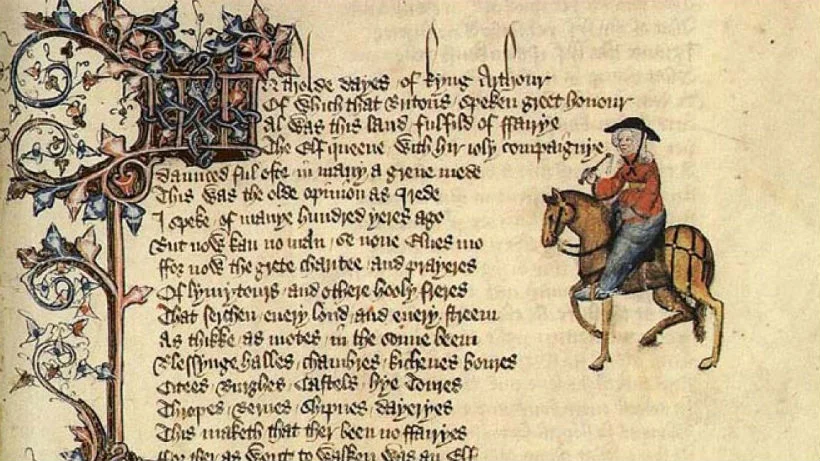 In tholde dayes of kyng Arthour
Of which that Britons speken greet honour
Al was this land fulfild of ffairye
The Elf queene with hir ioly compaignye
Daunced ful ofte in many a grene mede
This was the olde opinion as I rede
I speke of manye hundred yeres ago
But now kan no man se none Elues mo
ffor now the grete charitee and prayeres
Of lymytours and othere hooly freres
That serchen euery lond and euery streem
As thikke as motes in the sonne beem
Blessynge halles chambres kichenes boures
Citees Burghes Castels hye Toures
Thropes Bernes Shipnes dayeryes
This maketh that ther been no ffairyes
ffor ther as wont to walken was an Elf